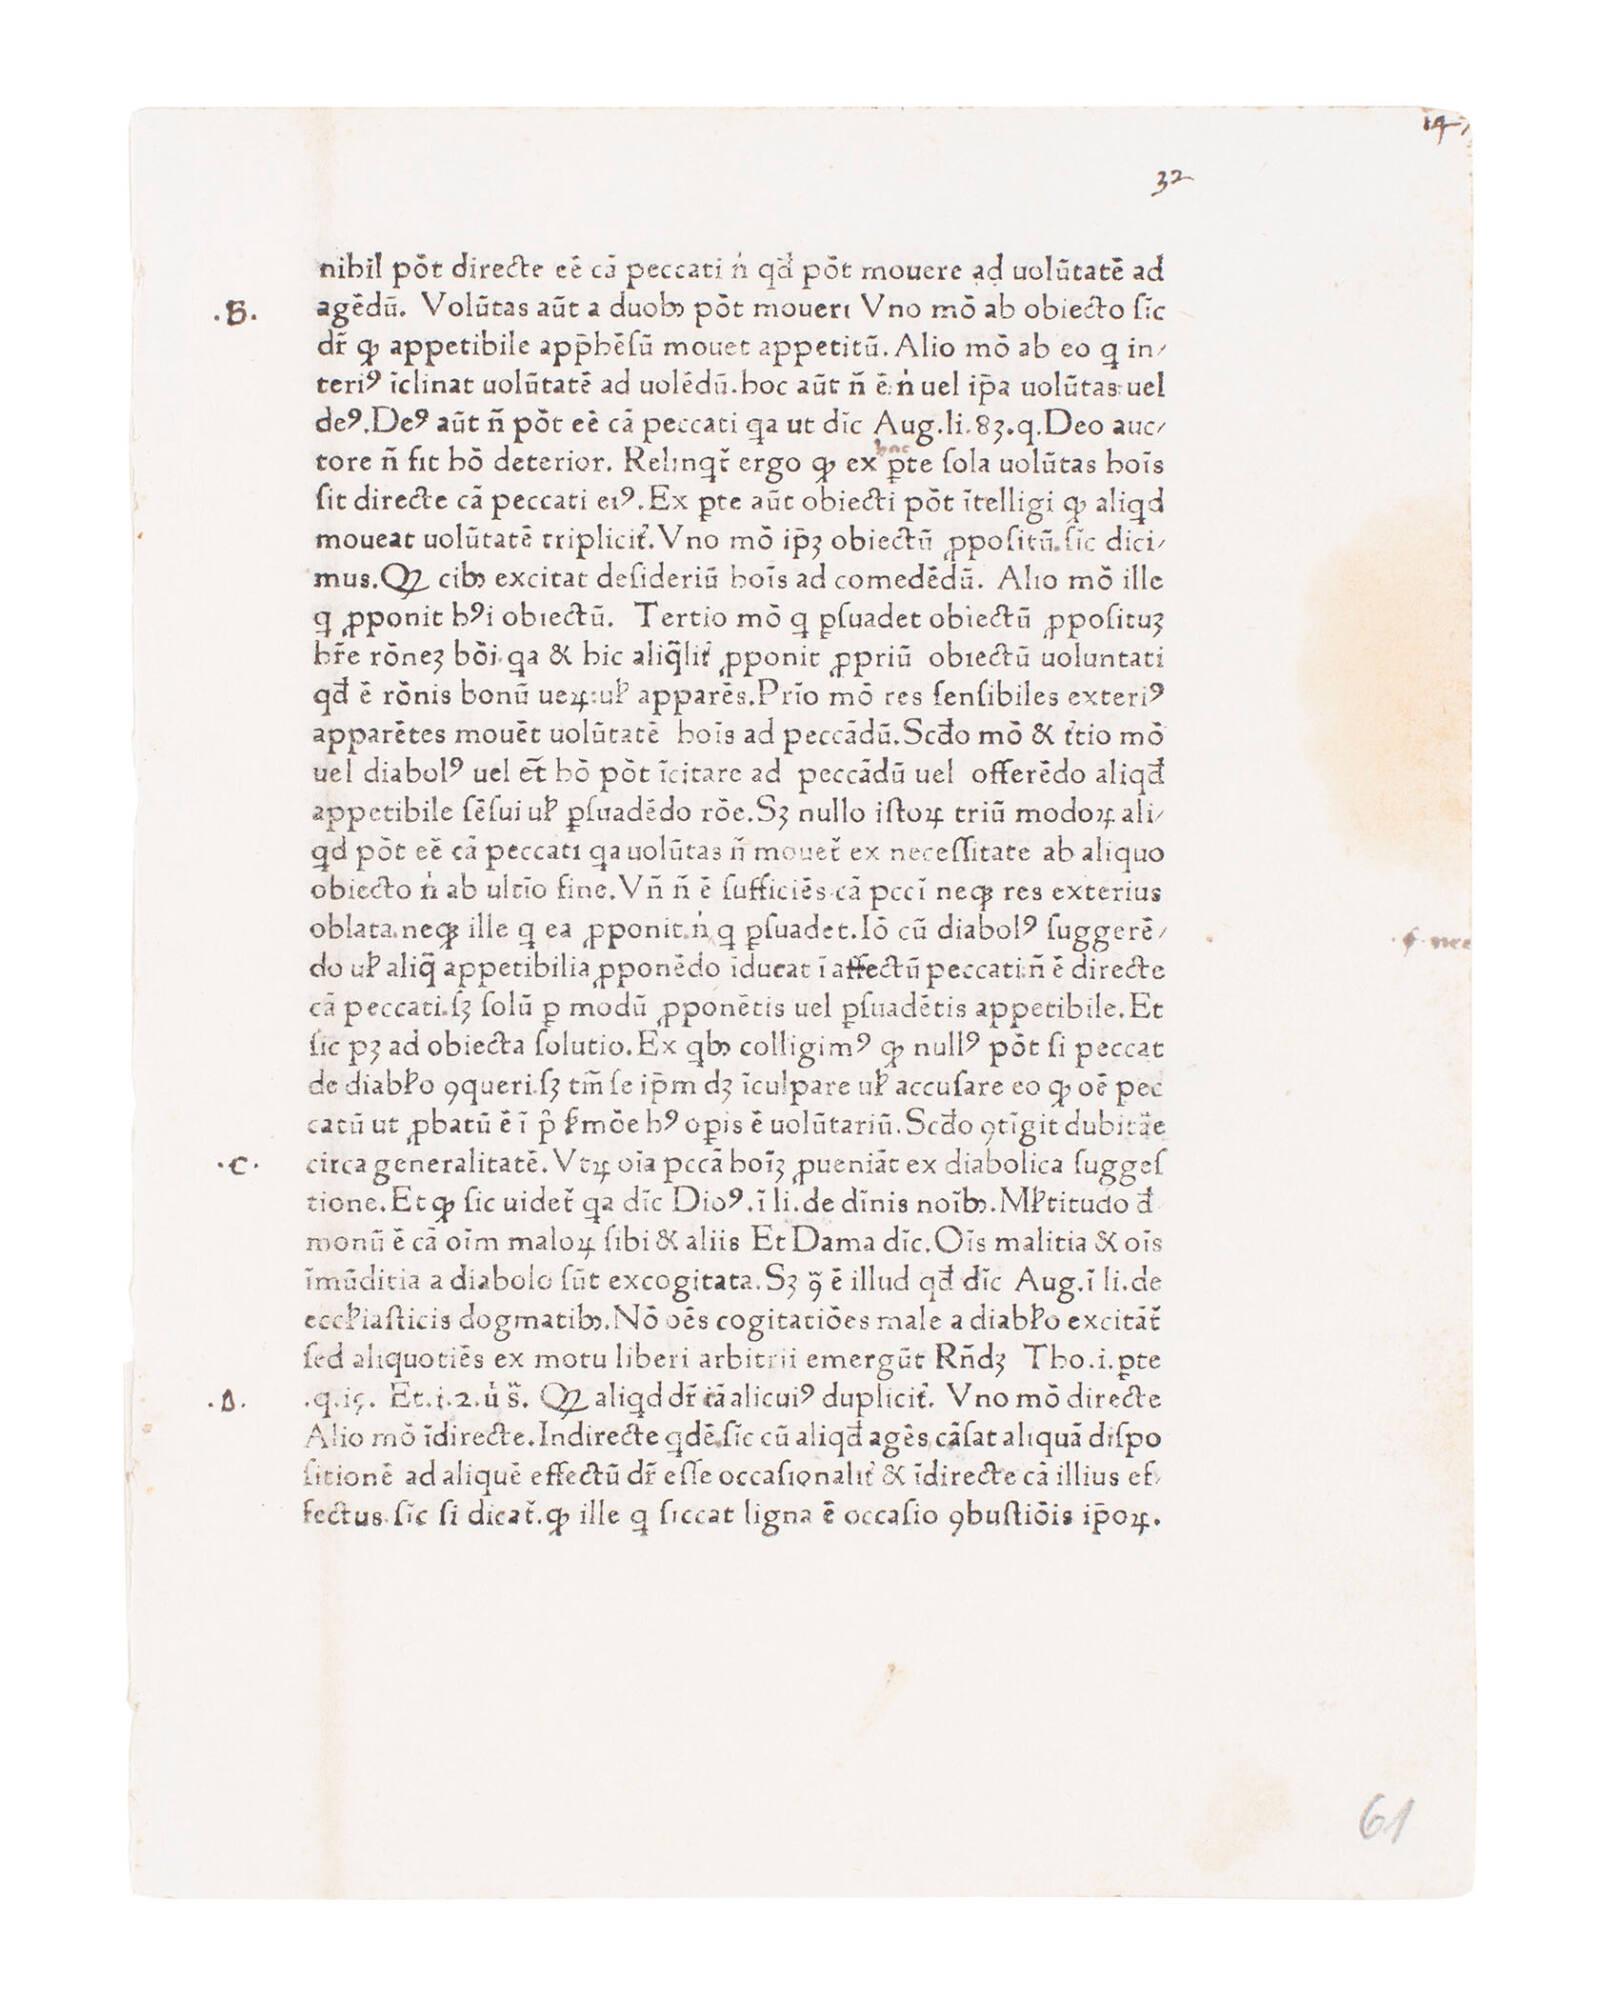 147
32
nihil põt directe eẽ cã peccati ṅ qd̄ põt mouere ad uolũtatẽ ad
.B. agẽdũ. Volũtas aũt a duobꝫ põt moueri Vno mõ ab obiecto sĩc
dr̃ ꝙ appetibile app̃hẽsũ mouet appetitũ. Alio mõ ab eo q in/
teriꝰ ĩclinat uolũtatẽ ad uolẽdũ. hoc aũt ñ ẽ: ṅ uel ip̃a uolũtas uel
deꝰ. Deꝰ aũt ñ põt eẽ cã peccati qa ut dĩc Aug. li. 83. q. Deo auc/
hac
tore ñ fit hõ deterior. Relinqr̃ ergo ꝙ ex ꝑte sola uolũtas hoĩs
sit directe cã peccati eiꝰ. Ex ꝑte aũt obiecti põt ĩtelligi ꝙ aliqd
moueat uolũtatẽ tripliciṫ. Vno mõ ip̃ꝫ obiectũ ꝓpositũ. sĩc dici/
mus. Qꝫ cibꝫ excitat desideriũ hoĩs ad comedẽdũ. Alio mõ ille
q ꝓponit hꝰi obiectũ. Tertio mõ q ꝑsuadet obiectũ ꝓpositũꝫ
hr̃e rõneꝫ bõi. qa & hic aliq̃liṫ ꝓponit ꝓpriũ obiectũ uoluntati
qd̄ ẽ rõnis bonũ ueꝝ: uꝉ apparẽs. Prĩo mõ res sensibiles exteriꝰ
apparẽtes mouẽt uolũtatẽ hoĩs ad peccãdũ. Scd̄o mõ & ṫtio mõ
uel diabolꝰ uel et̃ hõ põt ĩcitare ad peccãdũ uel offerẽdo aliqd̄
appetibile sẽsui uꝉ ꝑsuadẽdo rõe. Sꝫ nullo istoꝝ triũ modoꝝ ali/
qd põt eẽ cã peccati qa uolũtas ñ mouet̃ ex necessitate ab aliquo
obiecto ṅ ab ultĩo fine. Vñ ñ ẽ sufficiẽs cã pccĩ neqꝫ res exterius
oblata. neqꝫ ille q ea ꝓponit. ṅ q ꝑsuadet. Iõ cũ diabolꝰ suggerẽ/
do uꝉ aliq̃ appetibilia ꝓponẽdo ĩducat ĩ affectũ peccati: ñ ẽ directe
cã peccati. sꝫ solũ ꝑ modũ ꝓponẽtis uel ꝑsuadẽtis appetibile. Et
sic pꝫ ad obiecta solutio. Ex qbꝫ colligimꝰ ꝙ nullꝰ põt si peccat
de diabꝉo ꝯqueri. sꝫ tm̃ se ip̃m dꝫ ĩculpare uꝉ accusare eo ꝙ oẽ pec
catũ ut ꝓbatũ ẽ ĩ p̃ ẜmõe hꝰ opis ẽ uolũtariũ. Scd̄o ꝯtĩgit dubitãe
.C. circa generalitatẽ. Vtꝝ oĩa pccã hoĩꝫ ꝓueniãt ex diabolica sugges
tione. Et ꝙ sic uidet̃ qa dĩc Dioꝰ. ĩ li. de dĩnis noĩbꝫ. Mꝉtitudo d̄
monũ ẽ cã oĩm maloꝝ sibi & aliis Et Dama dĩc. Oĩs malitia & oĩs
ĩmũditia a diabolo sũt excogitata. Sꝫ ꝯ̃ ẽ illud qd̄ dĩc Aug. ĩ li. de
eccꝉiasticis dogmatibꝫ. Nõ oẽs cogitatiões male a diabꝉo excitãt̃
sed aliquotiẽs ex motu liberi arbitrii emergũt Rñdꝫ Tho. i. ꝑte
.D. .q. i5. Et. i. 2. u̇ s̃. Qꝫ aliqd dr̃ cã alicuiꝰ dupliciṫ. Vno mõ directe
Alio mõ ĩdirecte. Indirecte qdẽ. sĩc cũ aliqd̄ agẽs cãsat aliquã dispo
sitionẽ ad aliquẽ effectũ dr̃ esse occasionaliṫ & ĩdirecte cã illius ef/
fectus. sĩc si dicat̃. ꝙ ille q siccat ligna ẽ occasio ꝯbustiõis ip̃oꝝ.
61